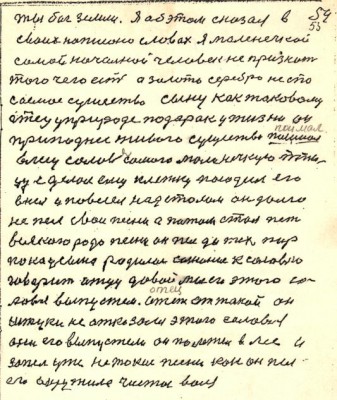 ты бог земли. Я об этом сказал в 54
своих написано словах я маленечкой 55
самой начаиной человек не признает
того чего ест а золото серебро не сто
самое существо сыну как таковому
отец у природе подарак у жизни он
приподнес живого существо поймал
в лесу соловья самого маленичкую птич
ку сделал ему клетку посадил его
внея и повесел над столом он долго
не пел свои песни а потом стал пет
всякого рода песни он пел до тех пор
пока у сына родилас к соловю
говорит отцу давай мы с этого со
ловья выпустем. отец от такой он
штуки не отказался этого соловья
они его выпустели он полетел в лес и
запел уже не токие песни как он пел
его окружила чистоя воля